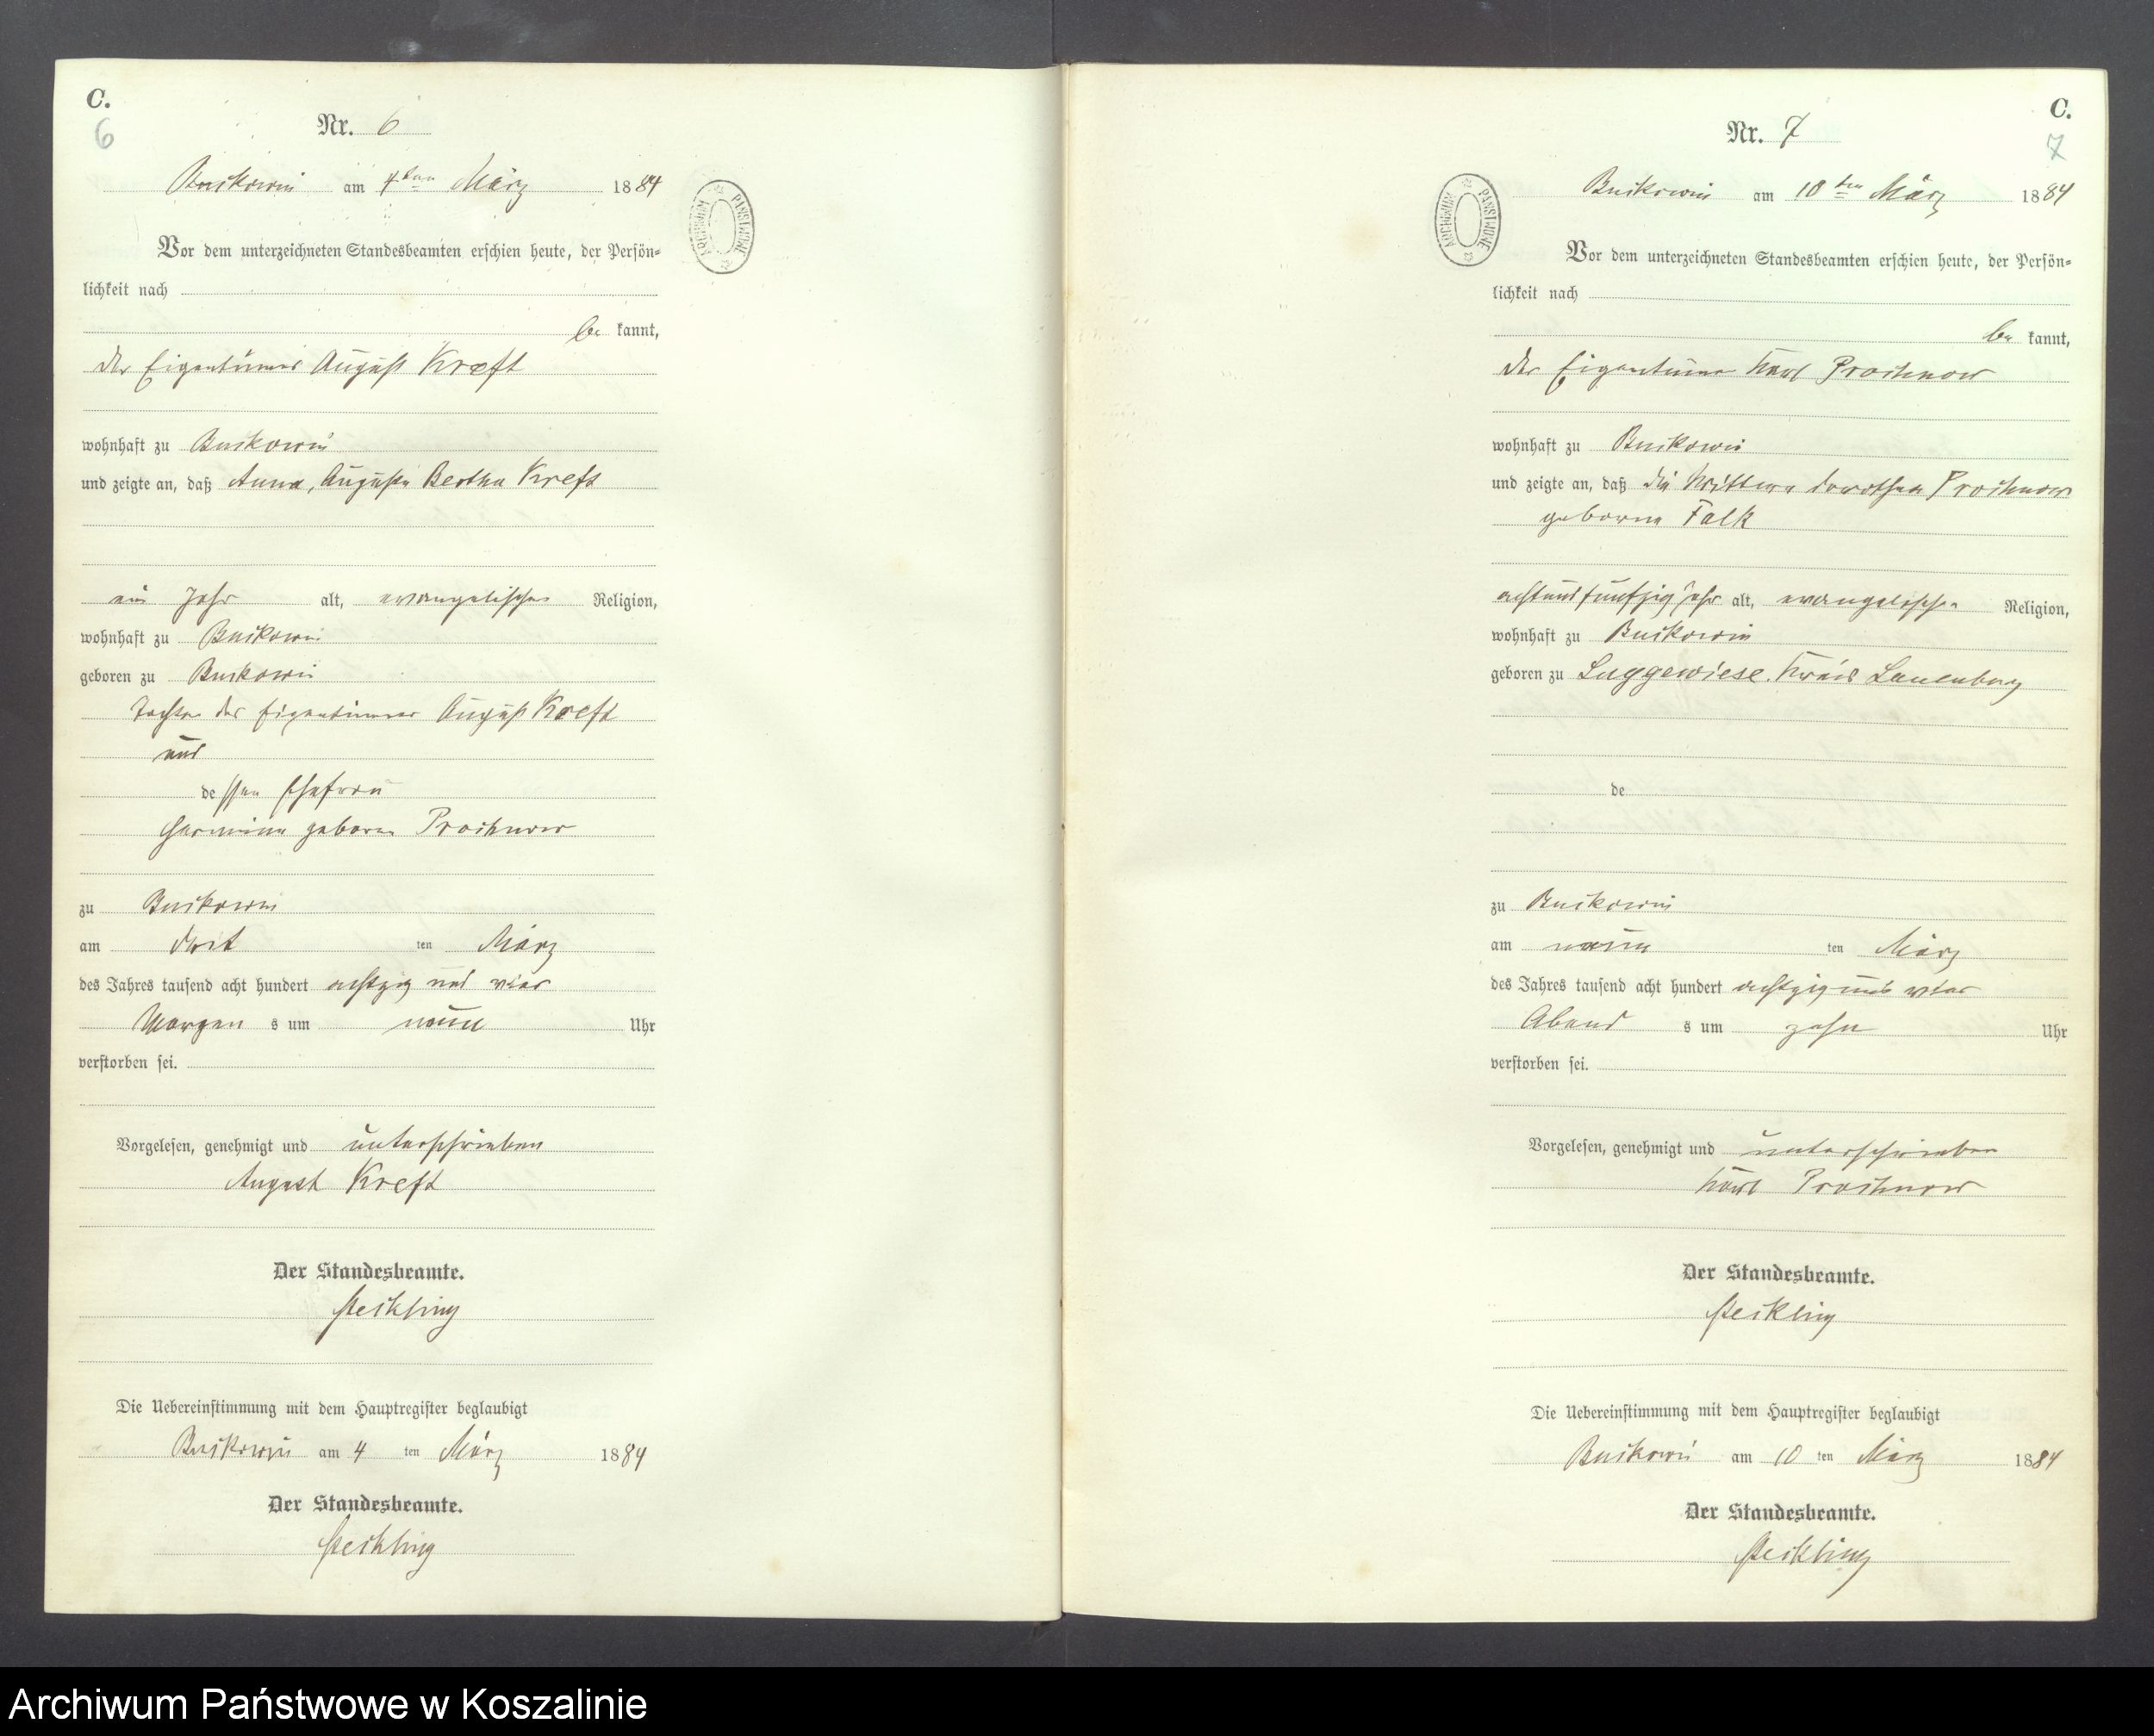 C.
6
Nr. 6
Buckowin am 4ten März 1884
ARCHIWUM PAŃSTWOWE
Vor dem unterzeichneten Standesbeamten erschien heute, der Persön-
lichkeit nach
be kannt,
der Eigentümer August Kreft
wohnhaft zu Buckowin
und zeigte an, daß Anna, Auguste Bertha Kreft
ein Jahr alt, evangelischer Religion,
wohnhaft zu Buckowin
geboren zu Buckowin
Tochter des Eigentümers August Kreft
und
dessen Ehefrau
Hermine geboren Prochnow
zu Buckowin
am ten März
des Jahres tausend acht hundert achtzig und vier
Morgen s um neun Uhr
verstorben sei.
Vorgelesen, genehmigt und unterschrieben
August Kreft
Der Standesbeamte.
Die Uebereinstimmung mit dem Hauptregister beglaubigt
Buckowin am 4 ten März 1884
Der Standesbeamte.
C.
7
Nr. 7
Buckowin am 10ten März 1884
ARCHIWUM PAŃSTWOWE
Vor dem unterzeichneten Standesbeamten erschien heute, der Persön-
lichkeit nach
be kannt,
der Eigentümer Karl Prochnow
wohnhaft zu Buckowin
und zeigte an, daß die Wittwe Dorothea Prochnow
geborne Falk
achtundfünfzig Jahr alt, evangelischer Religion,
wohnhaft zu Buckowin
geboren zu Luggewiese. Kreis Lauenburg
de
zu Buckowin
am neun ten März
des Jahres tausend acht hundert achtzig und vier
Abend s um zehn Uhr
verstorben sei.
Vorgelesen, genehmigt und unterschrieben
Karl Prochnow
Der Standesbeamte.
Die Uebereinstimmung mit dem Hauptregister beglaubigt
Buckowin am 10 ten März 1884
Der Standesbeamte.
Archiwum Państwowe w Koszalinie